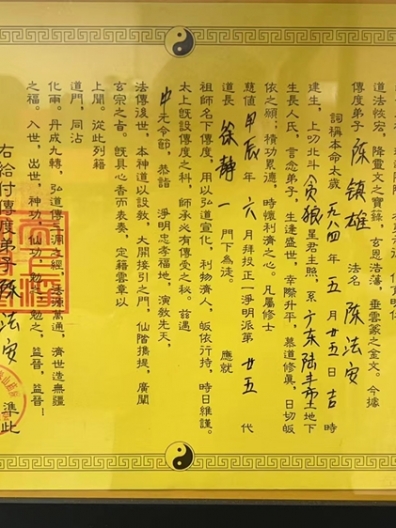 道法紘宏，降靈文之寶籙，玄恩浩蕩，垂雲篆之金文。今據
傳度弟子 陳鎮雄 法名 陳法安
詞稱本命太歲 一九八四年五月廿五日吉時
建生，上叨北斗貪狼星君主照，系广东陆丰市土地下
生長人氏，言念弟子，生逢盛世，幸際升平，慕道修真，日切皈
依之願；積功累德，時懷利濟之心。凡屬修士
慈值甲辰年六月拜投正一淨明派第廿五代
道長 徐靜一 門下為徒。 應就
祖師名下傳度，用以弘道宣化，利物濟人，皈依行持，時日維謹。
太上既設傳度之科，師承必有傳受之秘。茲遇
中元令節，恭詣 淨明忠孝福地，演教先天，
法傳後世，本神道以設教，大開接引之門，仙階攜提，廣闡
玄宗之音。既具心香而表奏，定籍雲章以
上聞。從此列籍
道門，同沾
化雨。丹成九轉，弘道傳之經，源萬通，濟世造無疆
之福。入世，出世，神功，仙功，勉之，益晉，益晉！
右給付傳度弟子陳法安 準此